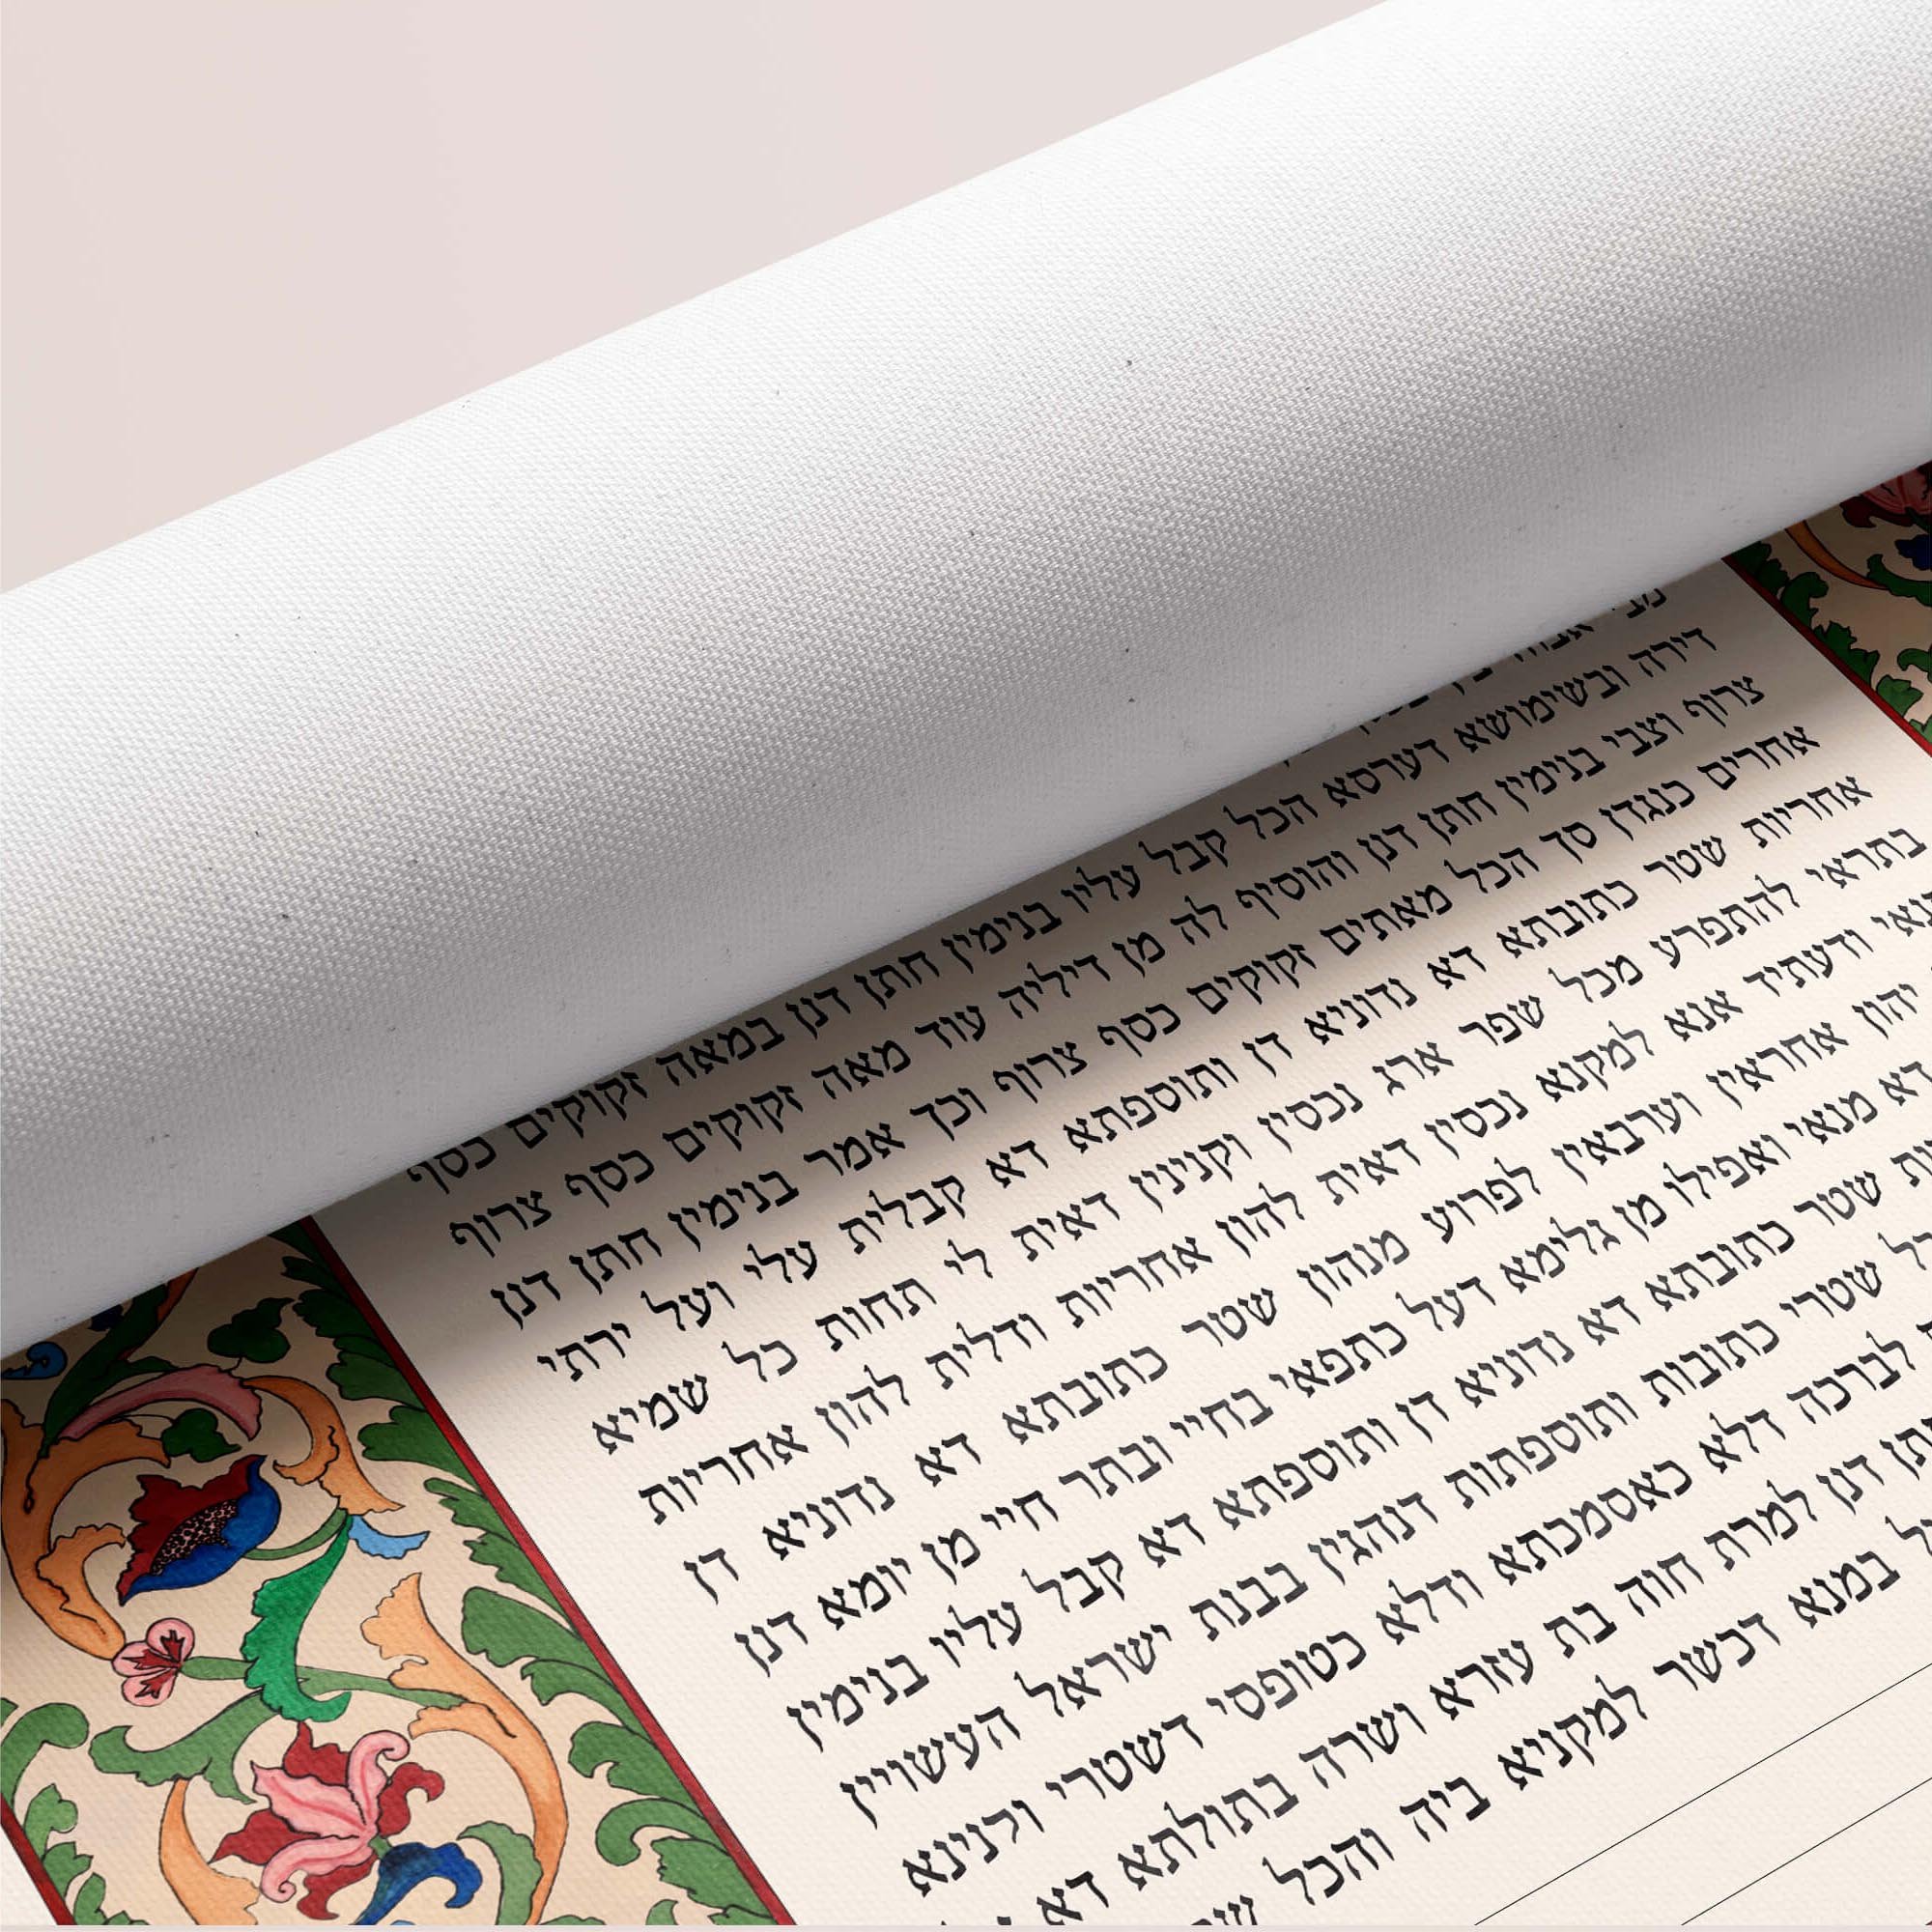 דירה ובשימושא דערסא הכל קבל עליו בנימין חתן דנן במאה זקוקים כסף
צרוף וצבי בנימין חתן דנן והוסיף לה מן דיליה עוד מאה זקוקים כסף צרוף
אחרים כנגדן סך הכל מאתים זקוקים כסף צרוף וכך אמר בנימין חתן דנן
אחריות שטר כתובתא דא נדוניא דן ותוספתא דא קבלית עלי ועל ירתי
בתראי להתפרע מכל שפר ארג נכסין וקנינין דאית לי תחות כל שמיא
ודעתיד אנא למקנא נכסין דאית להון אחריות ודלית להון אחריות
יהון אחראין וערבאין לפרוע מנהון שטר כתובתא דא נדוניא דן
דא מנאי ואפילו מן גלימא דעל כתפאי בחיי ובתר חיי מן יומא דנן
שטר כתובתא דא נדוניא דן ותוספתא דא קבל עליו בנימין
שטרי כתובות ותוספתות דנהגין בבנת ישראל העשויין
לברכה דלא כאסמכתא ודלא כטופסי דשטרי וקנינא
דנן למרת חוה בת עזרא ושרה בתולתא דא
במנא דכשר למקניא ביה והכל